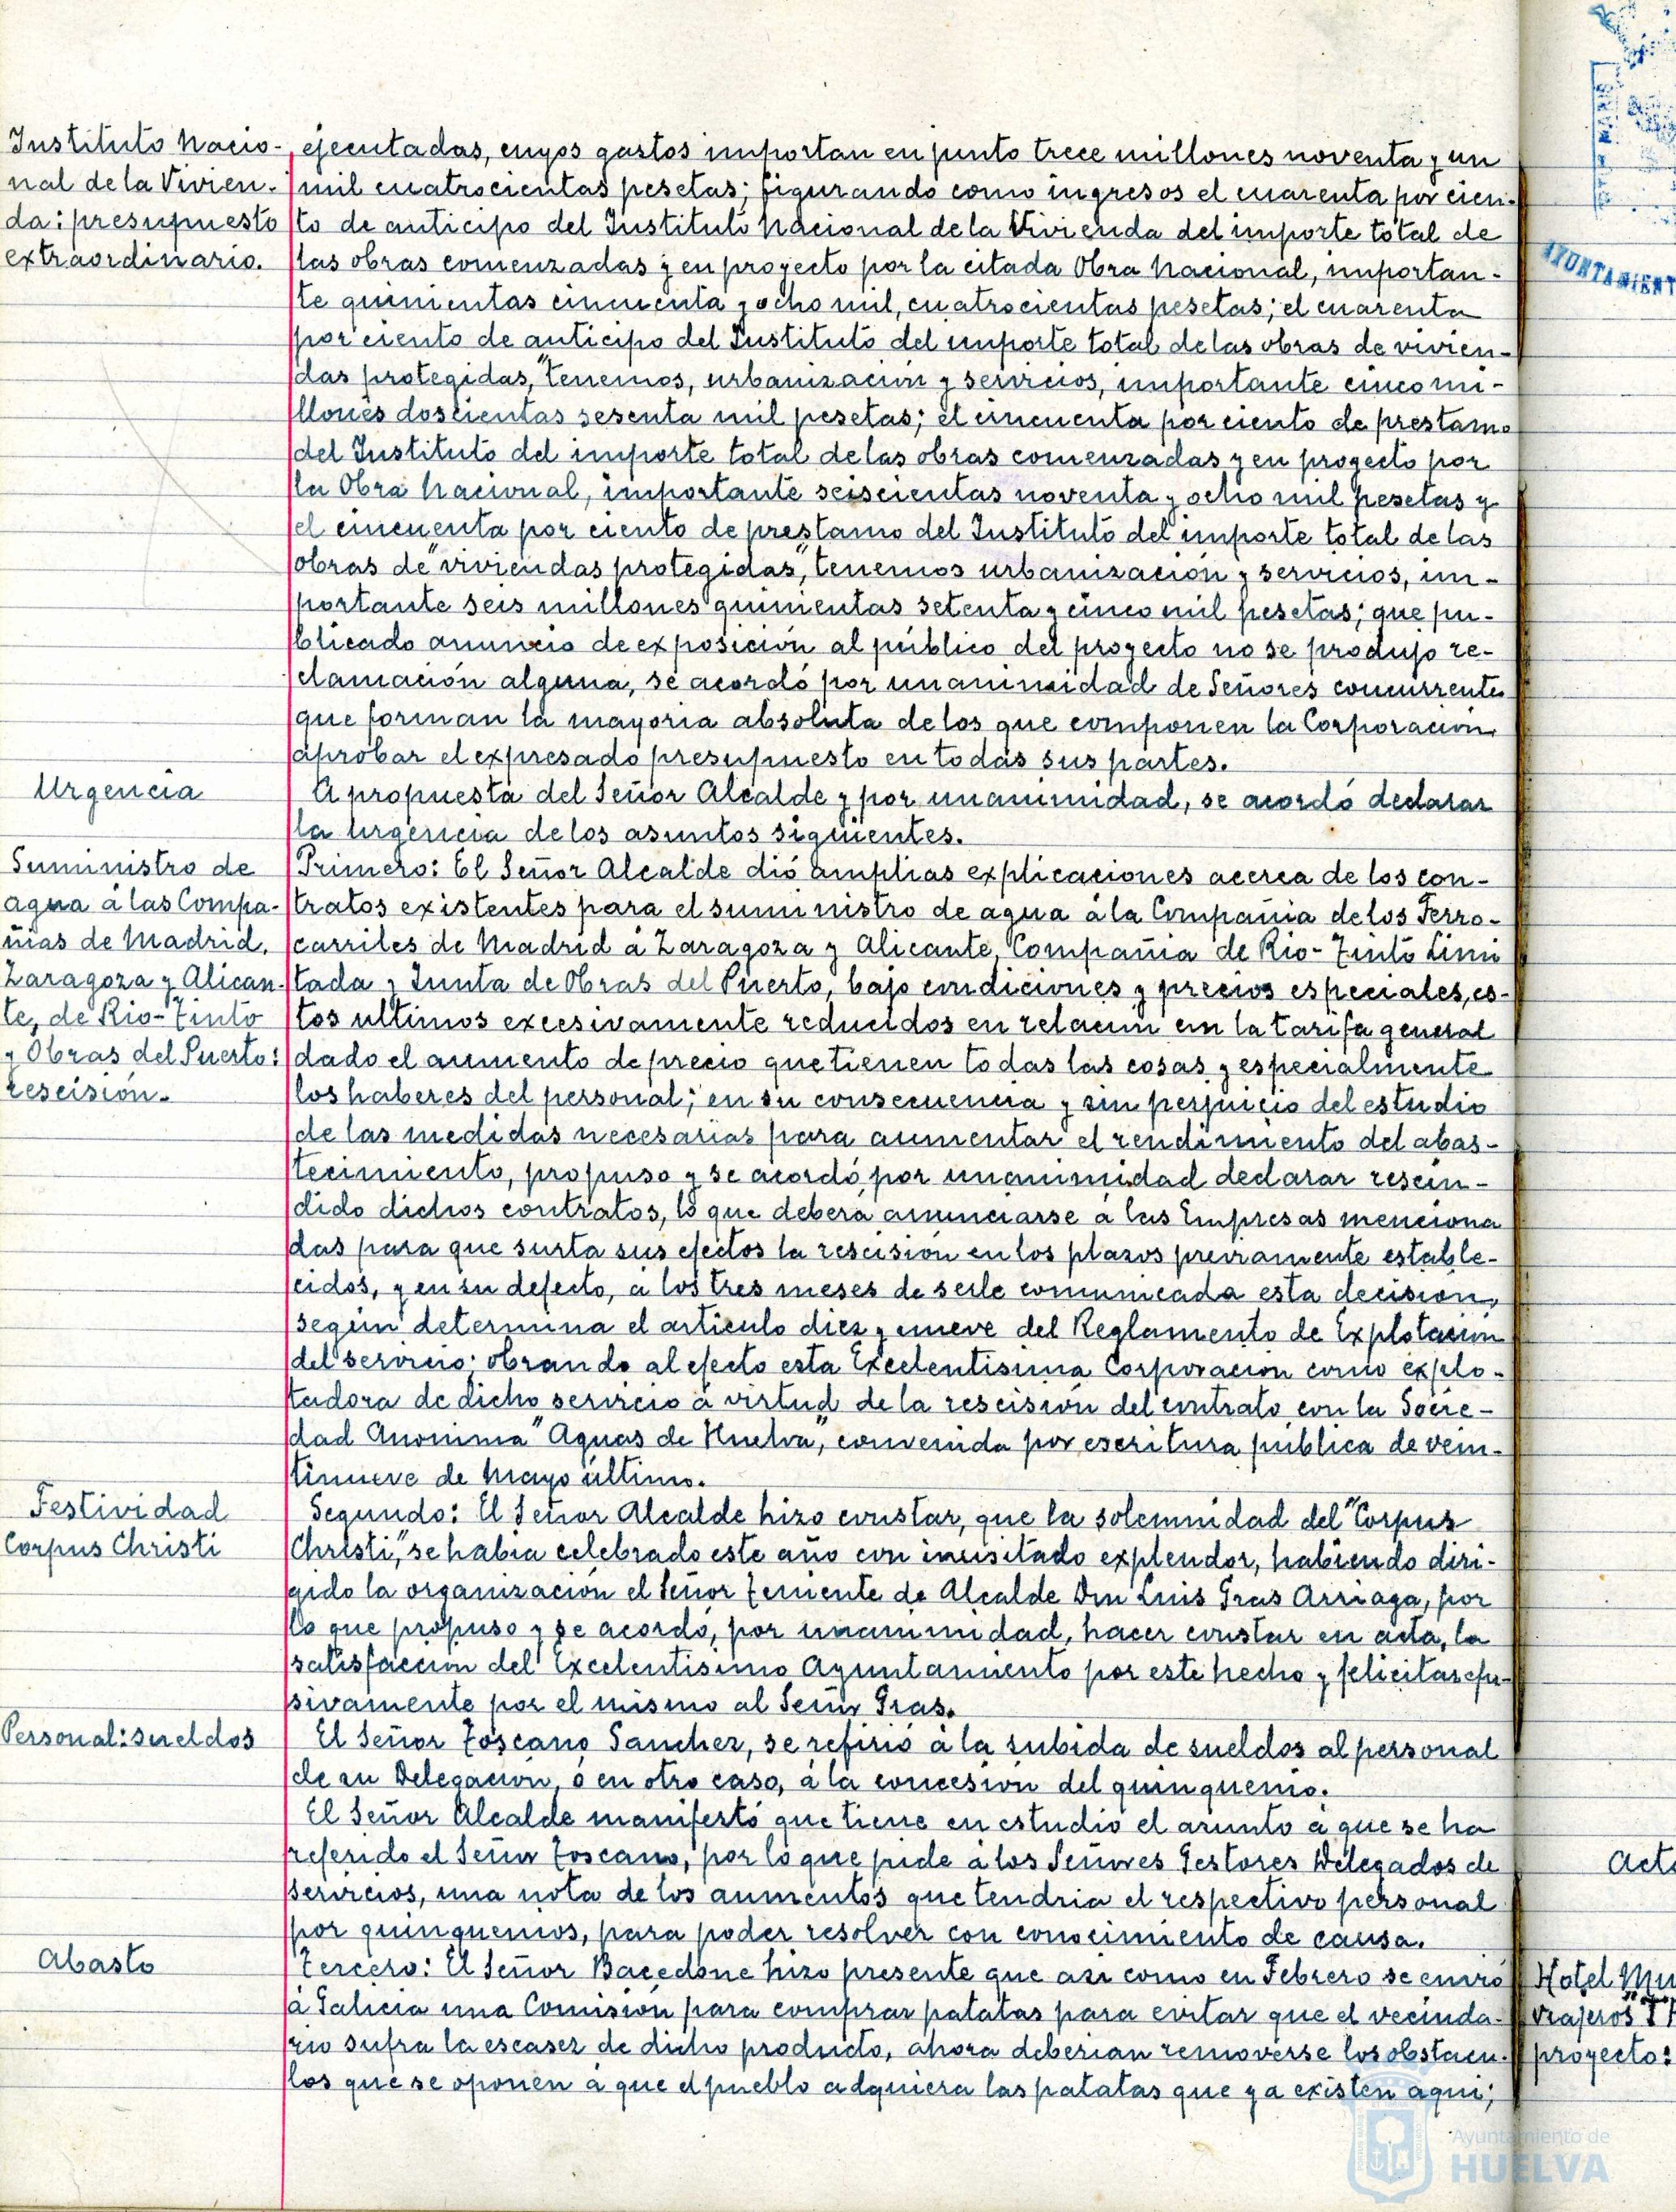 Instituto Nacio-
nal de la Vivien-
da: presupuesto
extraordinario.
ejecutadas, cuyos gastos importan en junto trece millones noventa y un
mil cuatrocientas pesetas; figurando como ingresos el cuarenta por cien-
to de anticipo del Instituto Nacional de la Vivienda del importe total de
las obras comenzadas y en proyecto por la citada Obra Nacional, importan-
te quinientas cincuenta y ocho mil, cuatrocientas pesetas; el cuarenta
por ciento de anticipo del Instituto del importe total de las obras de vivien-
das protegidas," tenemos, urbanización y servicios, importante cinco mi-
llones doscientas sesenta mil pesetas; el cincuenta por ciento de prestamo
del Instituto del importe total de las obras comenzadas y en proyecto por
la Obra Nacional, importante seiscientas noventa y ocho mil pesetas y
el cincuenta por ciento de prestamo del Instituto del importe total de las
obras de "viviendas protegidas", tenemos urbanización y servicios, im-
portante seis millones quinientas setenta y cinco mil pesetas; que pu-
blicado anuncio de exposición al público del proyecto no se produjo re-
clamación alguna, se acordó por unanimidad de Señores concurrentes
que forman la mayoria absoluta de los que componen la Corporación,
aprobar el expresado presupuesto en todas sus partes.
Urgencia
A propuesta del Señor Alcalde y por unanimidad, se acordó declarar
la urgencia de los asuntos siguientes.
Suministro de
agua a las Compa-
ñias de Madrid,
Zaragoza y Alican-
te, de Rio-Tinto
y Obras del Puerto:
rescisión.
Primero: El Señor Alcalde dió amplias explicaciones acerca de los con-
tratos existentes para el suministro de agua á la Compañia de los Ferro-
carriles de Madrid á Zaragoza y Alicante, Compañia de Rio-Tinto Limi
tada y Junta de Obras del Puerto, bajo condiciones y precios especiales, es-
tos ultimos excesivamente reducidos en relación con la tarifa general
dado el aumento de precio que tienen todas las cosas y especialmente
los haberes del personal; en su consecuencia y sin perjuicio del estudio
de las medidas necesarias para aumentar el rendimiento del abas-
tecimiento, propuso y se acordó por unanimidad declarar rescin-
dido dichos contratos, lo que deberá anunciarse a las Empresas menciona
das para que surta sus efectos la rescisión en los plazos previamente estable-
cidos, y en su defecto, a los tres meses de serle comunicada esta decisión,
según determina el articulo diez y nueve del Reglamento de Explotación
del servicio; obrando al efecto esta Excelentisima Corporación como explo-
tadora de dicho servicio á virtud de la rescisión del contrato con la Socie-
dad Anonima "Aguas de Huelva", convenida por escritura pública de vein-
tinueve de Mayo último.
Festividad
Corpus Christi
Segundo: El Señor Alcalde hizo constar, que la solemnidad del "Corpus
Christi", se habia celebrado este año con inusitado explendor, habiendo diri-
gido la organización el Señor Teniente de Alcalde Don Luis Gras Arriaga, por
lo que propuso y se acordó, por unanimidad, hacer constar en acta, la
satisfacción del Excelentisimo Ayuntamiento por este hecho y felicitar efu-
sivamente por el mismo al Señor Gras.
Personal: sueldos
El Señor Toscano Sanchez, se refirió a la subida de sueldos al personal
de su Delegación, ó en otro caso, á la concesión del quinquenio.
El Señor Alcalde manifestó que tiene en estudio el asunto a que se ha
referido el Señor Toscano, por lo que pide a los Señores Gestores Delegados de
servicios, una nota de los aumentos que tendria el respectivo personal
por quinquenios, para poder resolver con conocimiento de causa.
Abasto
Tercero: El Señor Bacedone hizo presente que asi como en Febrero se envió
á Galicia una Comisión para comprar patatas para evitar que el vecinda-
rio sufra la escasez de dicho producto, ahora deberian removerse los obstacu-
los que se oponen a que el pueblo adquiera las patatas que ya existen aqui;
AYUNTAMIENT
Acta
Hotel Mu
viajeros
proyecto:
Ayuntamiento de
HUELVA